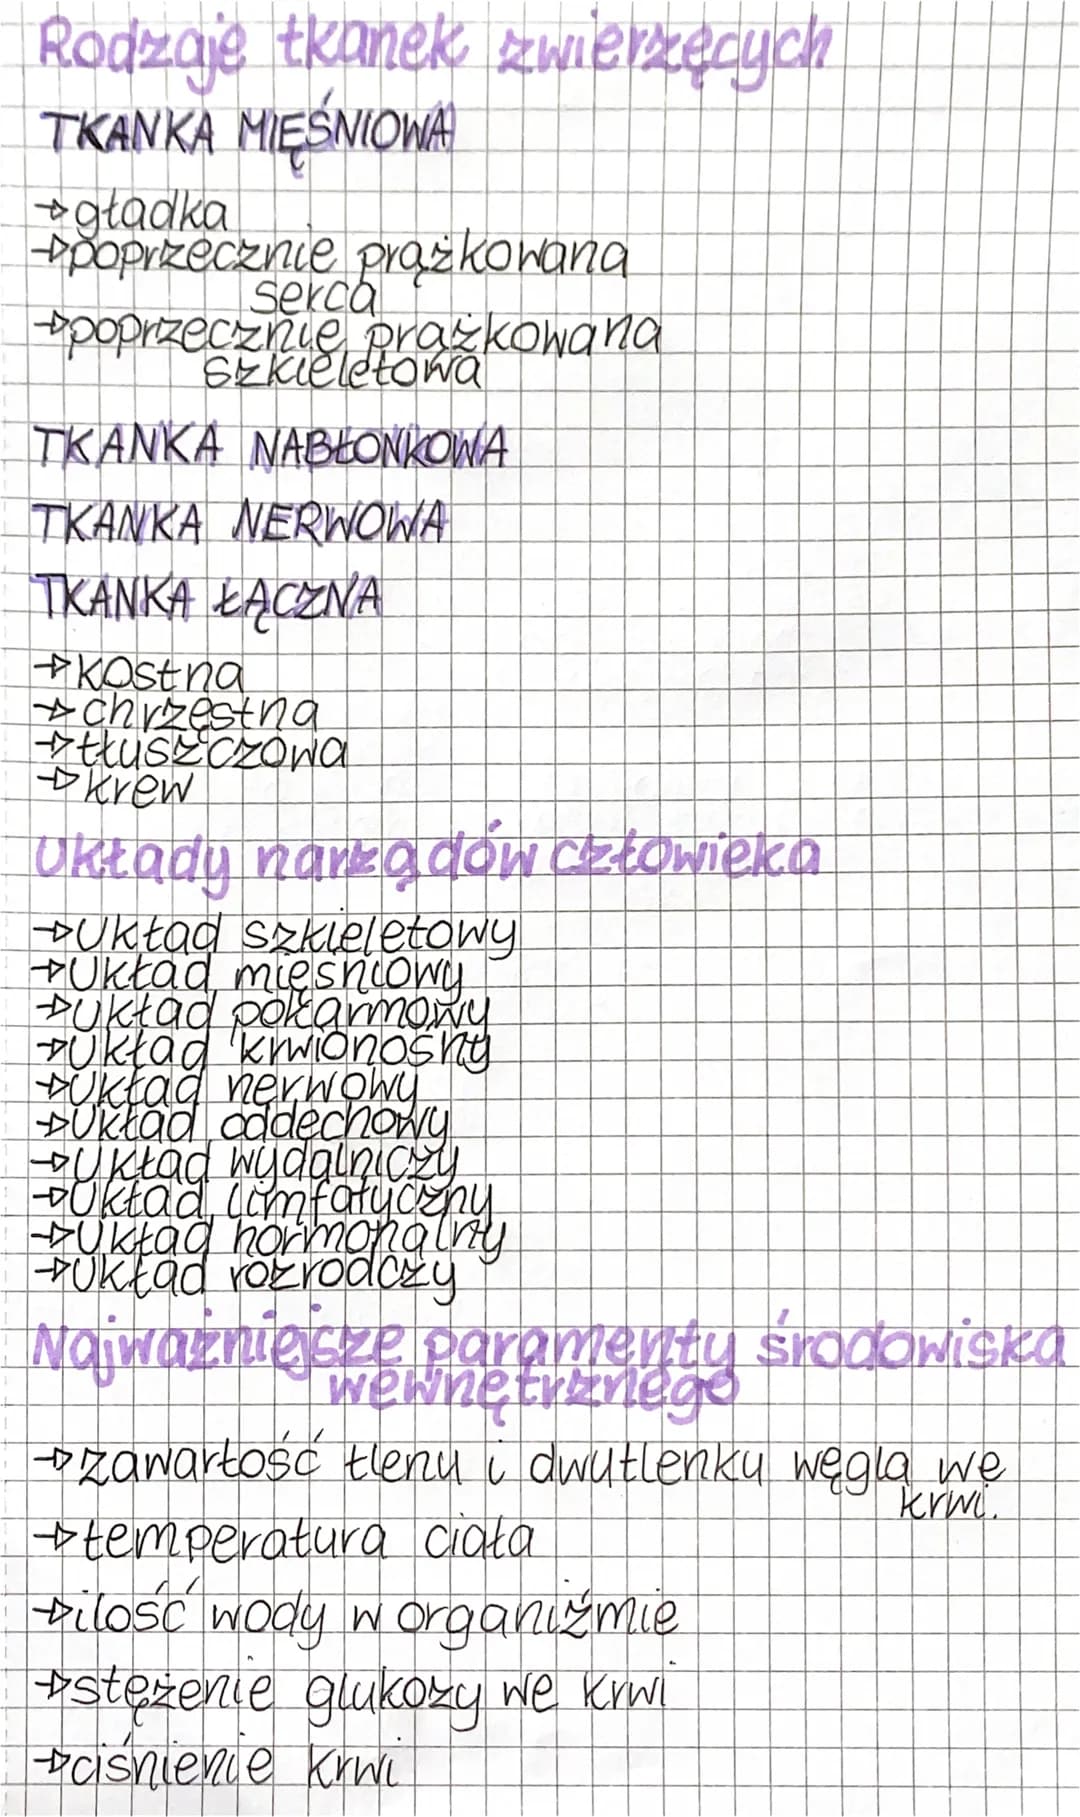 Rodzaje tkanek zwierzęcych
TKANKA MIĘŚNIOWA
→gładka
→poprzecznie prążkowana
serca
→poprzecznie prążkowana
szkieletowa
TKANKA NABŁONKOWA
TKANKA NERWOWA
TKANKA ŁĄCZNA
→kostna
→chrzęstna
→tłuszczowa
→krew
Układy narządów człowieka
→Układ szkieletowy
→Układ mięśniowy
→Układ pokarmowy
→Układ krwionośny
→Układ nerwowy
→Układ oddechowy
→Układ wydalniczy
→Układ limfatyczny
→Układ hormonalny
→Układ rozrodczy
Najważniejsze paramenty środowiska
wewnętrznego
→zawartość tlenu i dwutlenku węgla we
krwi.
→temperatura ciała
→ilość wody w organiźmie
→stężenie glukozy we krwi
→ciśnienie krwi